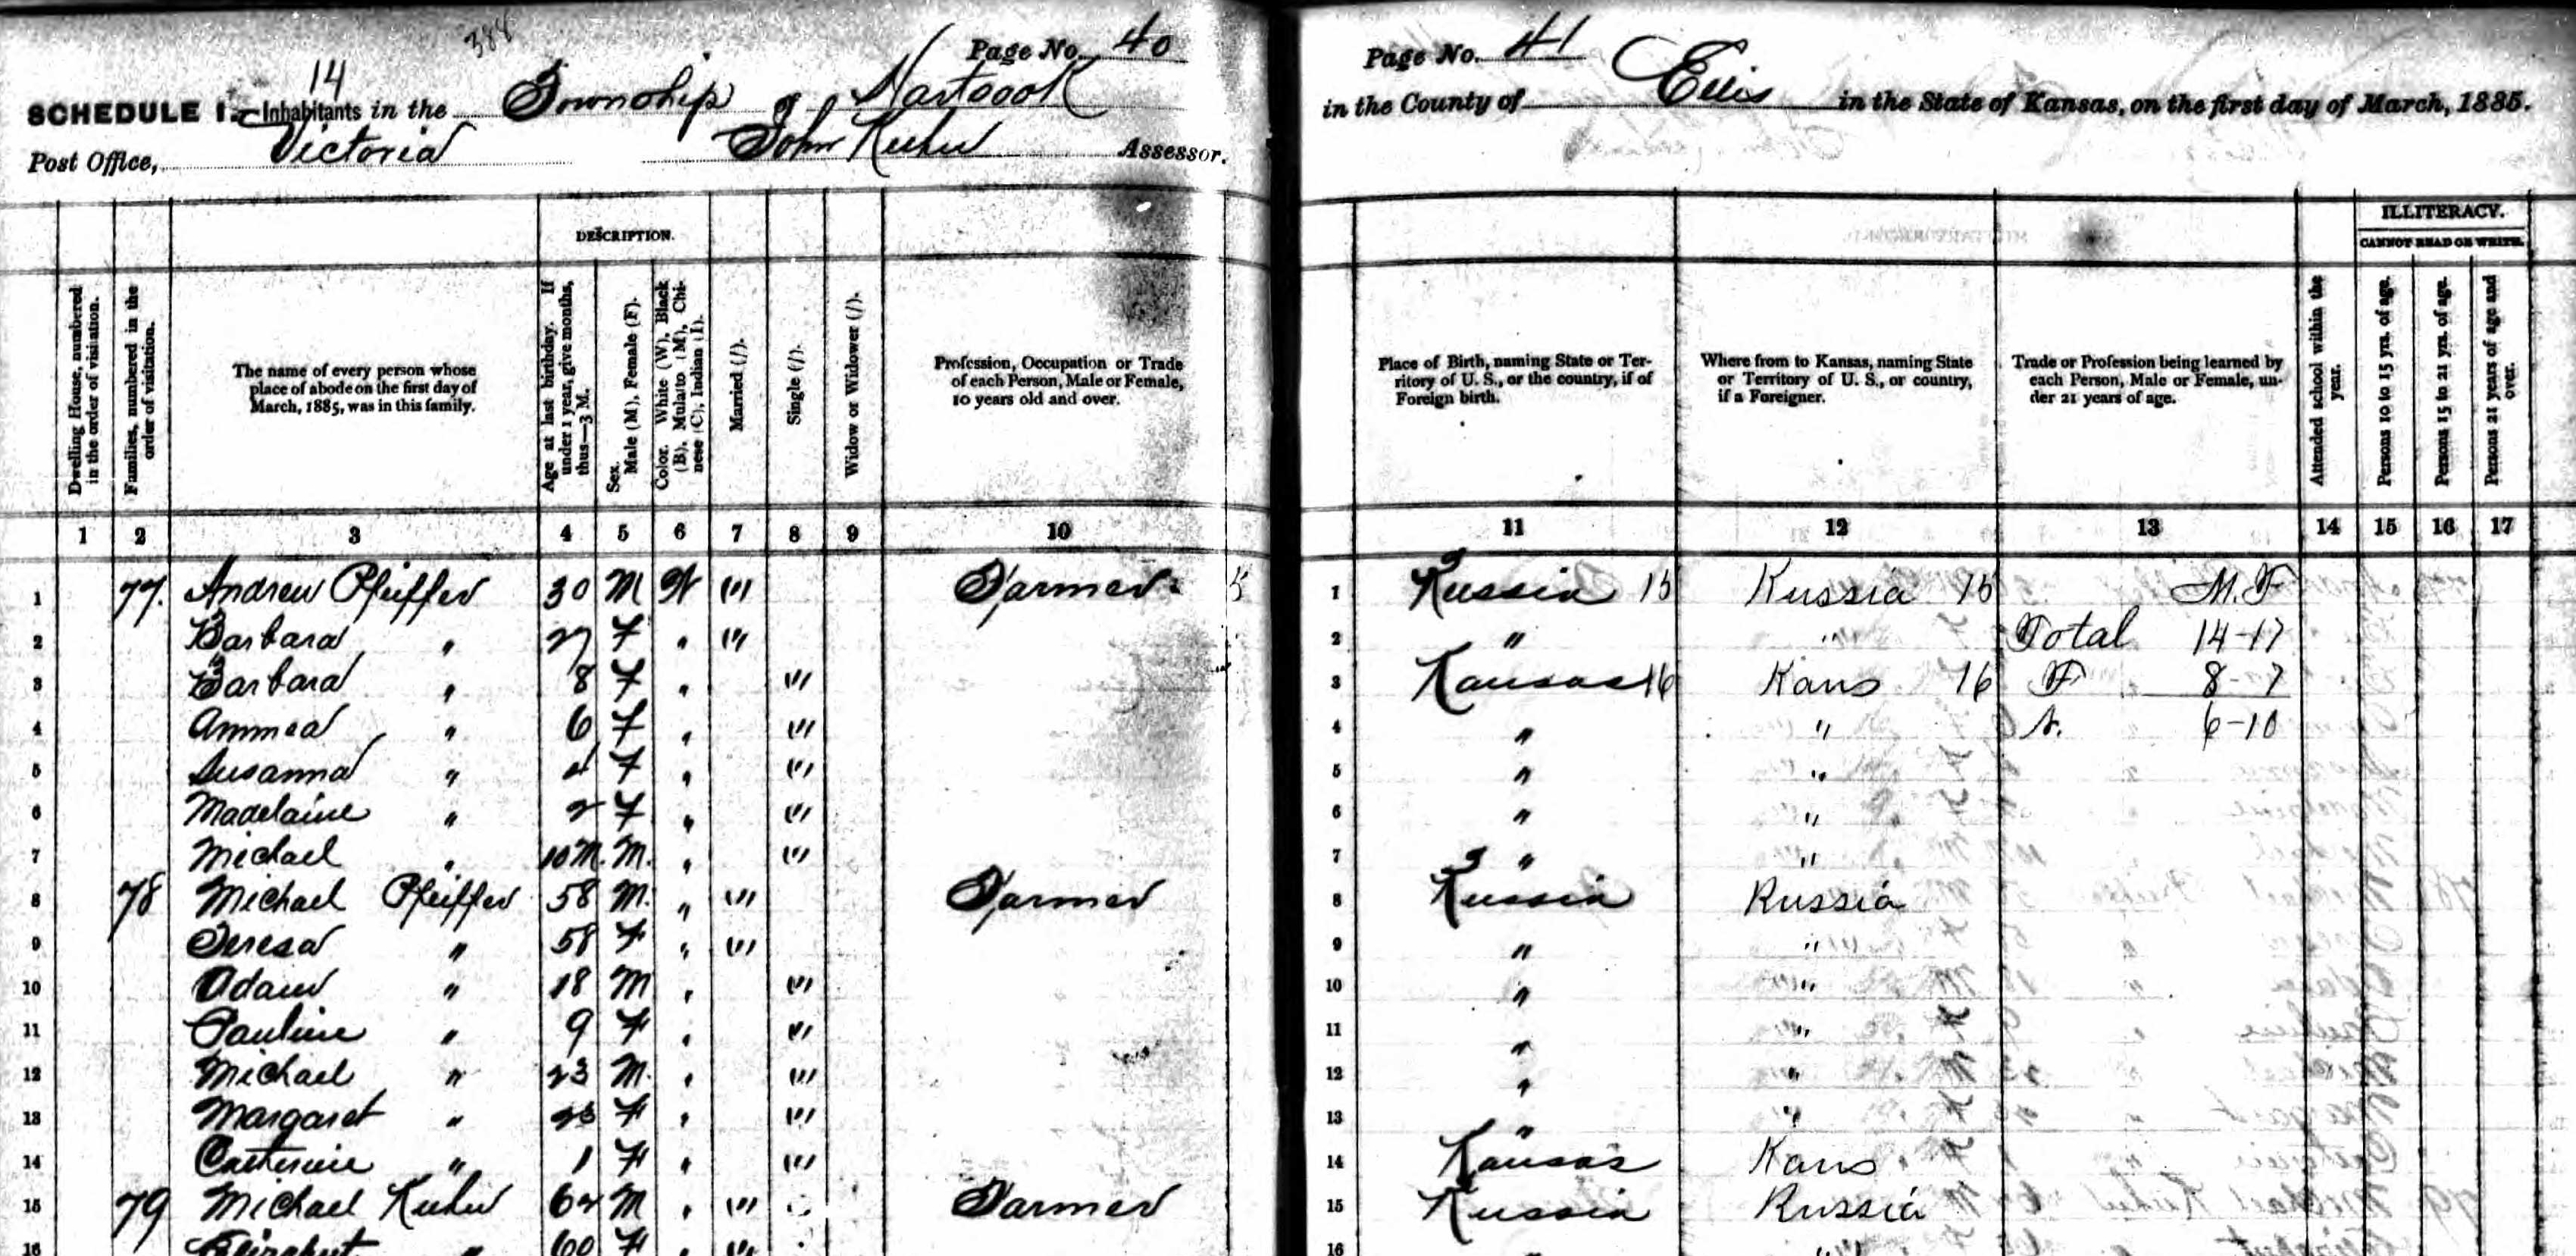 384
Page No. 40
Page No. 41
14
SCHEDULE I.—Inhabitants in the Township of Hartsook
in the County of Ellis in the State of Kansas, on the first day of March, 1885.
Post Office, Victoria John Kuhn Assessor.
DESCRIPTION.
ILLITERACY.
CANNOT READ OR WRITE.
Dwelling House, numbered in the order of visitation.
Families, numbered in the order of visitation.
The name of every person whose place of abode on the first day of March, 1885, was in this family.
Age at last birthday. If under 1 year, give months, thus—3 M.
Sex. Male (M), Female (F).
Color. White (W), Black (B), Mulatto (M), Chinese (C), Indian (I).
Married (/).
Single (/).
Widow or Widower (/).
Profession, Occupation or Trade of each Person, Male or Female, 10 years old and over.
Place of Birth, naming State or Territory of U. S., or the country, if of Foreign birth.
Where from to Kansas, naming State or Territory of U. S., or country, if a Foreigner.
Trade or Profession being learned by each Person, Male or Female, under 21 years of age.
Attended school within the year.
Persons 10 to 15 yrs. of age.
Persons 15 to 21 yrs. of age.
Persons 21 years of age and over.
1 2 3 4 5 6 7 8 9 10 11 12 13 14 15 16 17
1 77. Andrew Pfeiffer 30 M W (") Farmer 1 Russia 15 Russia 15 M. F
2 Barbara " 27 F " (") 2 " " Total 14-17
3 Barbara " 8 F " (") 3 Kansas 16 Kans 16 F 8-7
4 Ammea " 6 F " (") 4 " " N. 6-10
5 Susanna " 4 F " (") 5 " "
6 Madelaine " 2 F " (") 6 " "
7 Michael " 10 M. M. " (") 7 " "
8 78 Michael Pfeiffer 58 M. " (") Farmer 8 Russia Russia
9 Teresa " 58 F " (") 9 " "
10 Adam " 18 M " (") 10 " "
11 Pauline " 9 F " (") 11 " "
12 Michael " 23 M. " (") 12 " "
13 Margaret " 23 F " (") 13 " "
14 Catherine " 1 F " (") 14 Kansas Kans
15 79 Michael Kuhn 62 M " (") Farmer 15 Russia Russia
16 " 60 F " (") 16